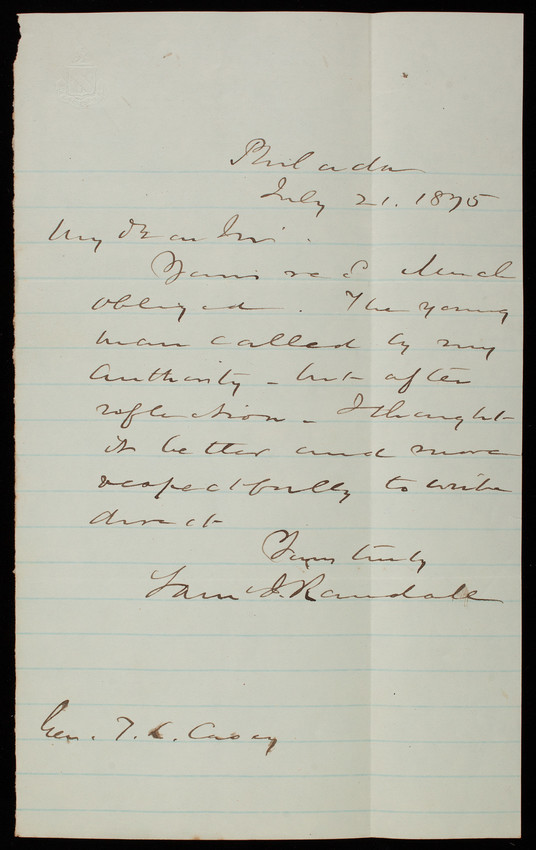 Philada
July 21. 1875
My Dear Sir.
Yours rec'd Much
obliged. The young
man called by my
authority - but after
reflection - I thought
it better and more
respectfully to write
direct
Yours truly
Sam J. Randall
Gen. T. L. Casey